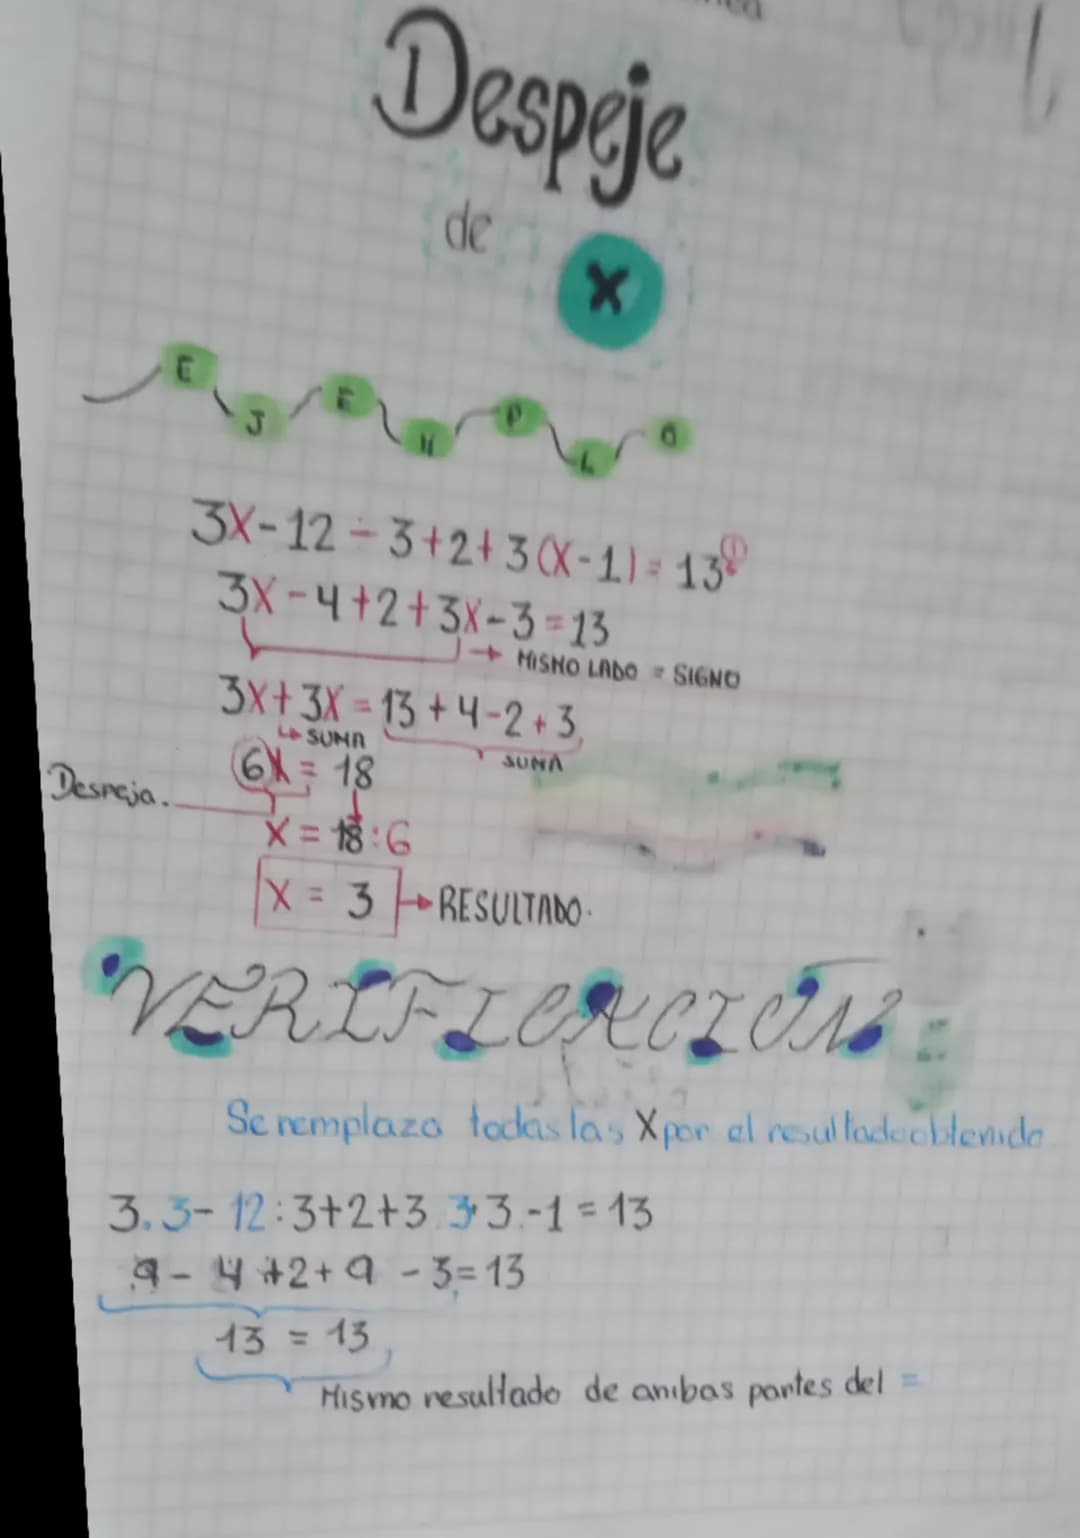 Despeje
de
X
EJEMPLO
3X-12÷3+2+3(X-1)=13
3X-4+2+3X-3=13
→ MISMO LADO = SIGNO
3X+3X=13+4-2+3
↳ SUMA
SUMA
6X=18
Despeja.
X=18:6
X=3 → RESULTADO.
VERIFICACIÓN
Se remplaza todas las X por el resultado obtenido
3.3-12:3+2+3.3+3.-1=13
9-4+2+9-3=13
13=13
Mismo resultado de ambas partes del =